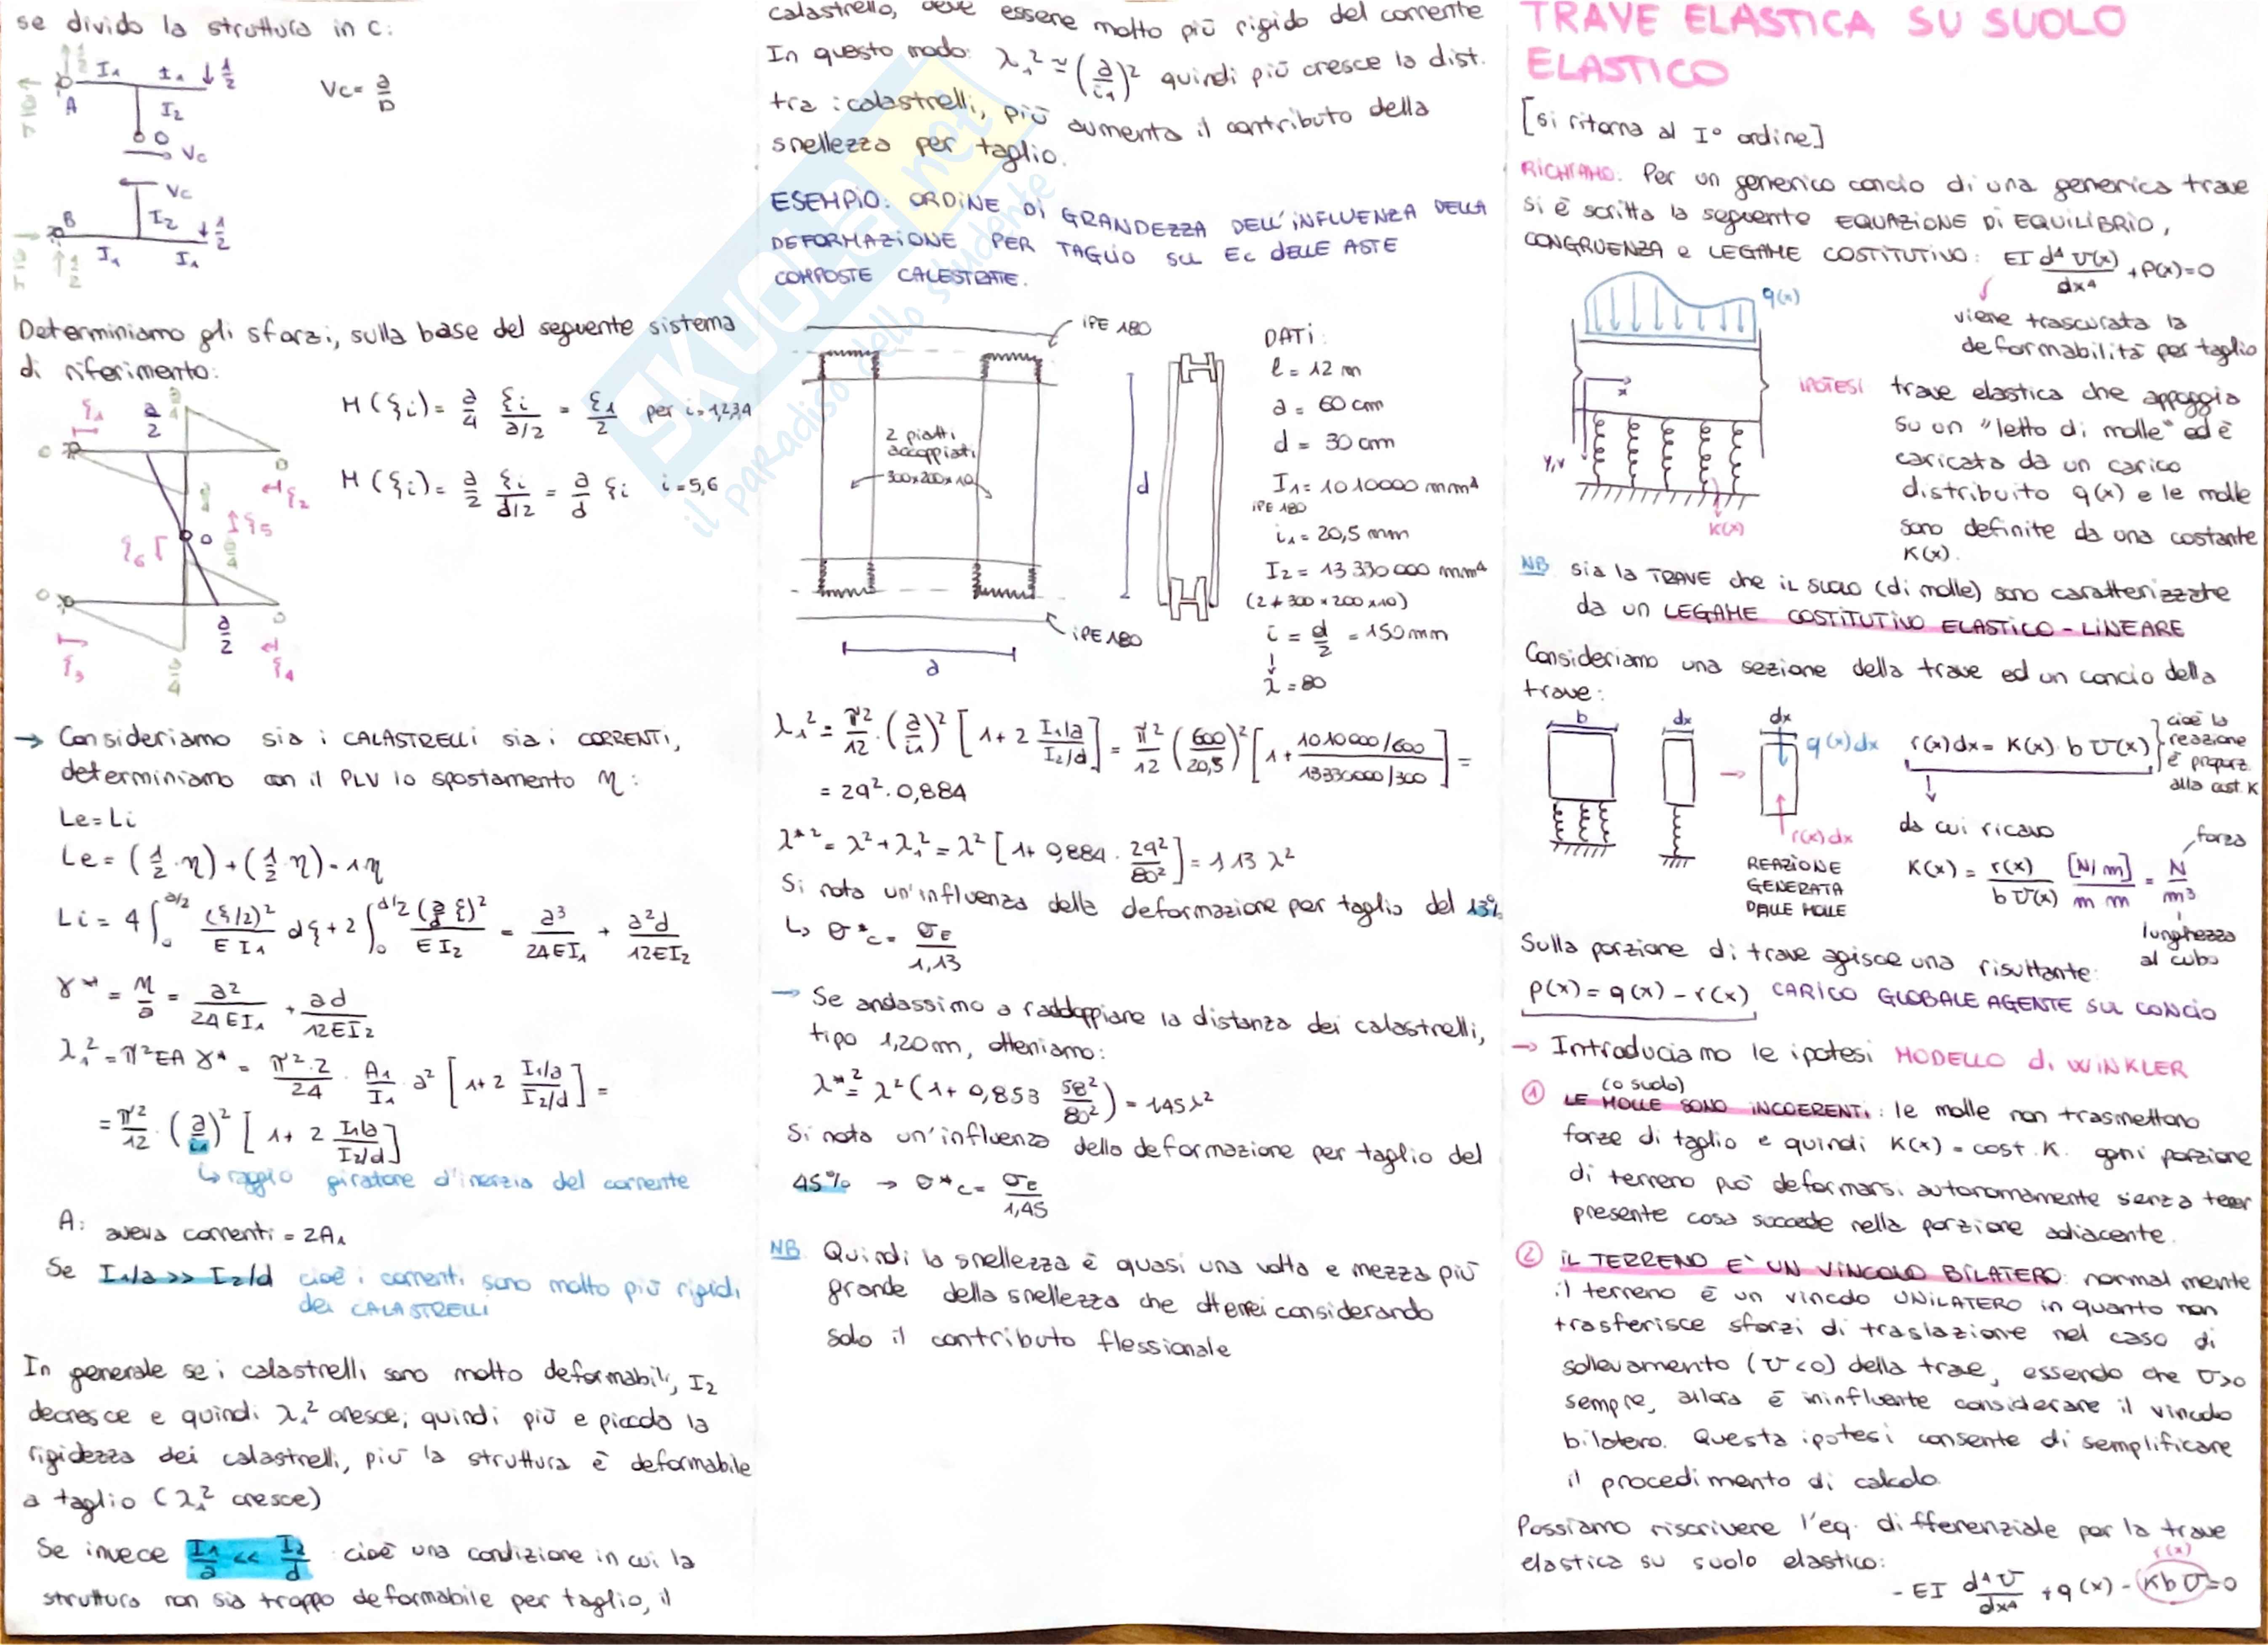 se divido la struttura in C:
1/2
I₁ I₁ ↓ 1/2
A
I₂
O
Vc
Vc = a/D
Vc
I₂
B
↓ 1/2
1/2
I₁ I₁
Determiniamo gli sforzi, sulla base del seguente sistema
di riferimento:
ξ₁ a/2 a/4
M(ξi) = a/4 ξi/(a/2) = ξ₁/2 per i=1,2,3,4
M(ξi) = a/2 ξi/(d/2) = a/d ξi i=5,6
ξ₂
ξ₅
ξ₆
O
a/2
ξ₃
a/4
ξ₄
→ Consideriamo sia i CALASTRELLI sia i CORRENTI,
determiniamo con il PLV lo spostamento η:
Le=Li
Le = (1/2·η)+(1/2·η) = 1η
Li = 4∫₀^(a/2) (ξ/2)²/(EI₁) dξ + 2∫₀^(d/2) (a/d ξ)²/(EI₂) = a³/(24EI₁) + a²d/(12EI₂)
γ* = η/a = a²/(24EI₁) + ad/(12EI₂)
λ₁² = π²EA γ* = π²·2/24 · A₁/I₁ · a² [1+2 (I₁/a)/(I₂/d)] =
= π²/12 · (a/i₁)² [1+ 2 (I₁/a)/(I₂/d)]
↳ raggio giratore d'inerzia del corrente
A: avevo correnti = 2A₁
Se I₁/a >> I₂/d cioè i correnti sono molto più rigidi
dei CALASTRELLI
In generale se i calastrelli sono molto deformabili, I₂
decresce e quindi λ₁² cresce; quindi più e piccola la
rigidezza dei calastrelli, più la struttura è deformabile
a taglio (λ₁² cresce)
Se invece I₁/a << I₂/d cioè una condizione in cui la
struttura non sia troppo deformabile per taglio, il
calastrello, deve essere molto più rigido del corrente
In questo modo: λ₁² ≃ (a/i₁)² quindi più cresce la dist.
tra i calastrelli, più aumenta il contributo della
snellezza per taglio.
ESEMPIO: ORDINE DI GRANDEZZA DELL'INFLUENZA DELLA
DEFORMAZIONE PER TAGLIO SU Ec DELLE ASTE
COMPOSTE CALESTRATE.
IPE 180
2 piatti
accoppiati
300x200x10
d
IPE 180
a
DATI:
l = 12 m
a = 60 cm
d = 30 cm
I₁ = 1010000 mm⁴
IPE 180
i₁ = 20,5 mm
I₂ = 13 330 000 mm⁴
(2 * 300 x 200 x 10)
i = d/2 = 150 mm
↓
λ = 80
λ₁² = π²/12 · (a/i₁)² [1+2 (I₁/a)/(I₂/d)] = π²/12 (600/20,5)² [1+ (1010000/600)/(13330000/300)] =
= 29² · 0,884
λ*² = λ²+λ₁² = λ² [1+ 0,884 · 29²/80²] = 1,13 λ²
Si nota un'influenza della deformazione per taglio del 13%
↳ σ*c = σE/1,13
→ Se andassimo a raddoppiare la distanza dei calastrelli,
tipo 1,20m, otteniamo:
λ*² = λ² (1+ 0,853 58²/80²) = 1,45 λ²
Si nota un'influenza dello deformazione per taglio del
45% → σ*c = σE/1,45
NB. Quindi la snellezza è quasi una volta e mezza più
grande della snellezza che otterrei considerando
solo il contributo flessionale
TRAVE ELASTICA SU SUOLO
ELASTICO
[si ritorna al I° ordine]
RICHIAMO: Per un generico concio di una generica trave
si è scritta la seguente EQUAZIONE DI EQUILIBRIO,
CONGRUENZA e LEGAME COSTITUTIVO: EI d⁴v(x)/dx⁴ + p(x)=0
q(x)
viene trascurata la
deformabilità per taglio
x
y,v
K(x)
IPOTESI trave elastica che appoggia
su un "letto di molle" ed è
caricata da un carico
distribuito q(x) e le molle
sono definite da una costante
K(x).
NB. sia la TRAVE che il SUOLO (di molle) sono caratterizzate
da un LEGAME COSTITUTIVO ELASTICO-LINEARE
Consideriamo una sezione della trave ed un concio della
trave:
b dx dx
q(x)dx
r(x)dx
REAZIONE
GENERATA
DALLE MOLLE
r(x)dx = K(x) · b v(x) } cioè la
reazione
è proporz.
alla cost. K
↓
da cui ricavo
K(x) = r(x)/(b v(x)) [N/m]/(m m) = N/m³
forza
lunghezza
al cubo
Sulla porzione di trave agisce una risultante:
p(x) = q(x) - r(x) CARICO GLOBALE AGENTE SUL CONCIO
→ Introduciamo le ipotesi MODELLO di WINKLER
(o suolo)
① LE MOLLE SONO INCOERENTI: le molle non trasmettono
forze di taglio e quindi K(x) = cost. K. ogni porzione
di terreno può deformarsi autonomamente senza tener
presente cosa succede nella porzione adiacente.
② IL TERRENO E' UN VINCOLO BILATERO: normalmente
il terreno è un vincolo UNILATERO in quanto non
trasferisce sforzi di traslazione nel caso di
sollevamento (v<0) della trave, essendo che v>0
sempre, allora è ininfluente considerare il vincolo
bilatero. Questa ipotesi consente di semplificare
il procedimento di calcolo.
Possiamo riscrivere l'eq. differenziale per la trave
elastica su suolo elastico:
r(x)
- EI d⁴v/dx⁴ + q(x) - Kbv = 0
SKUOLA.net
il paradiso dello studente